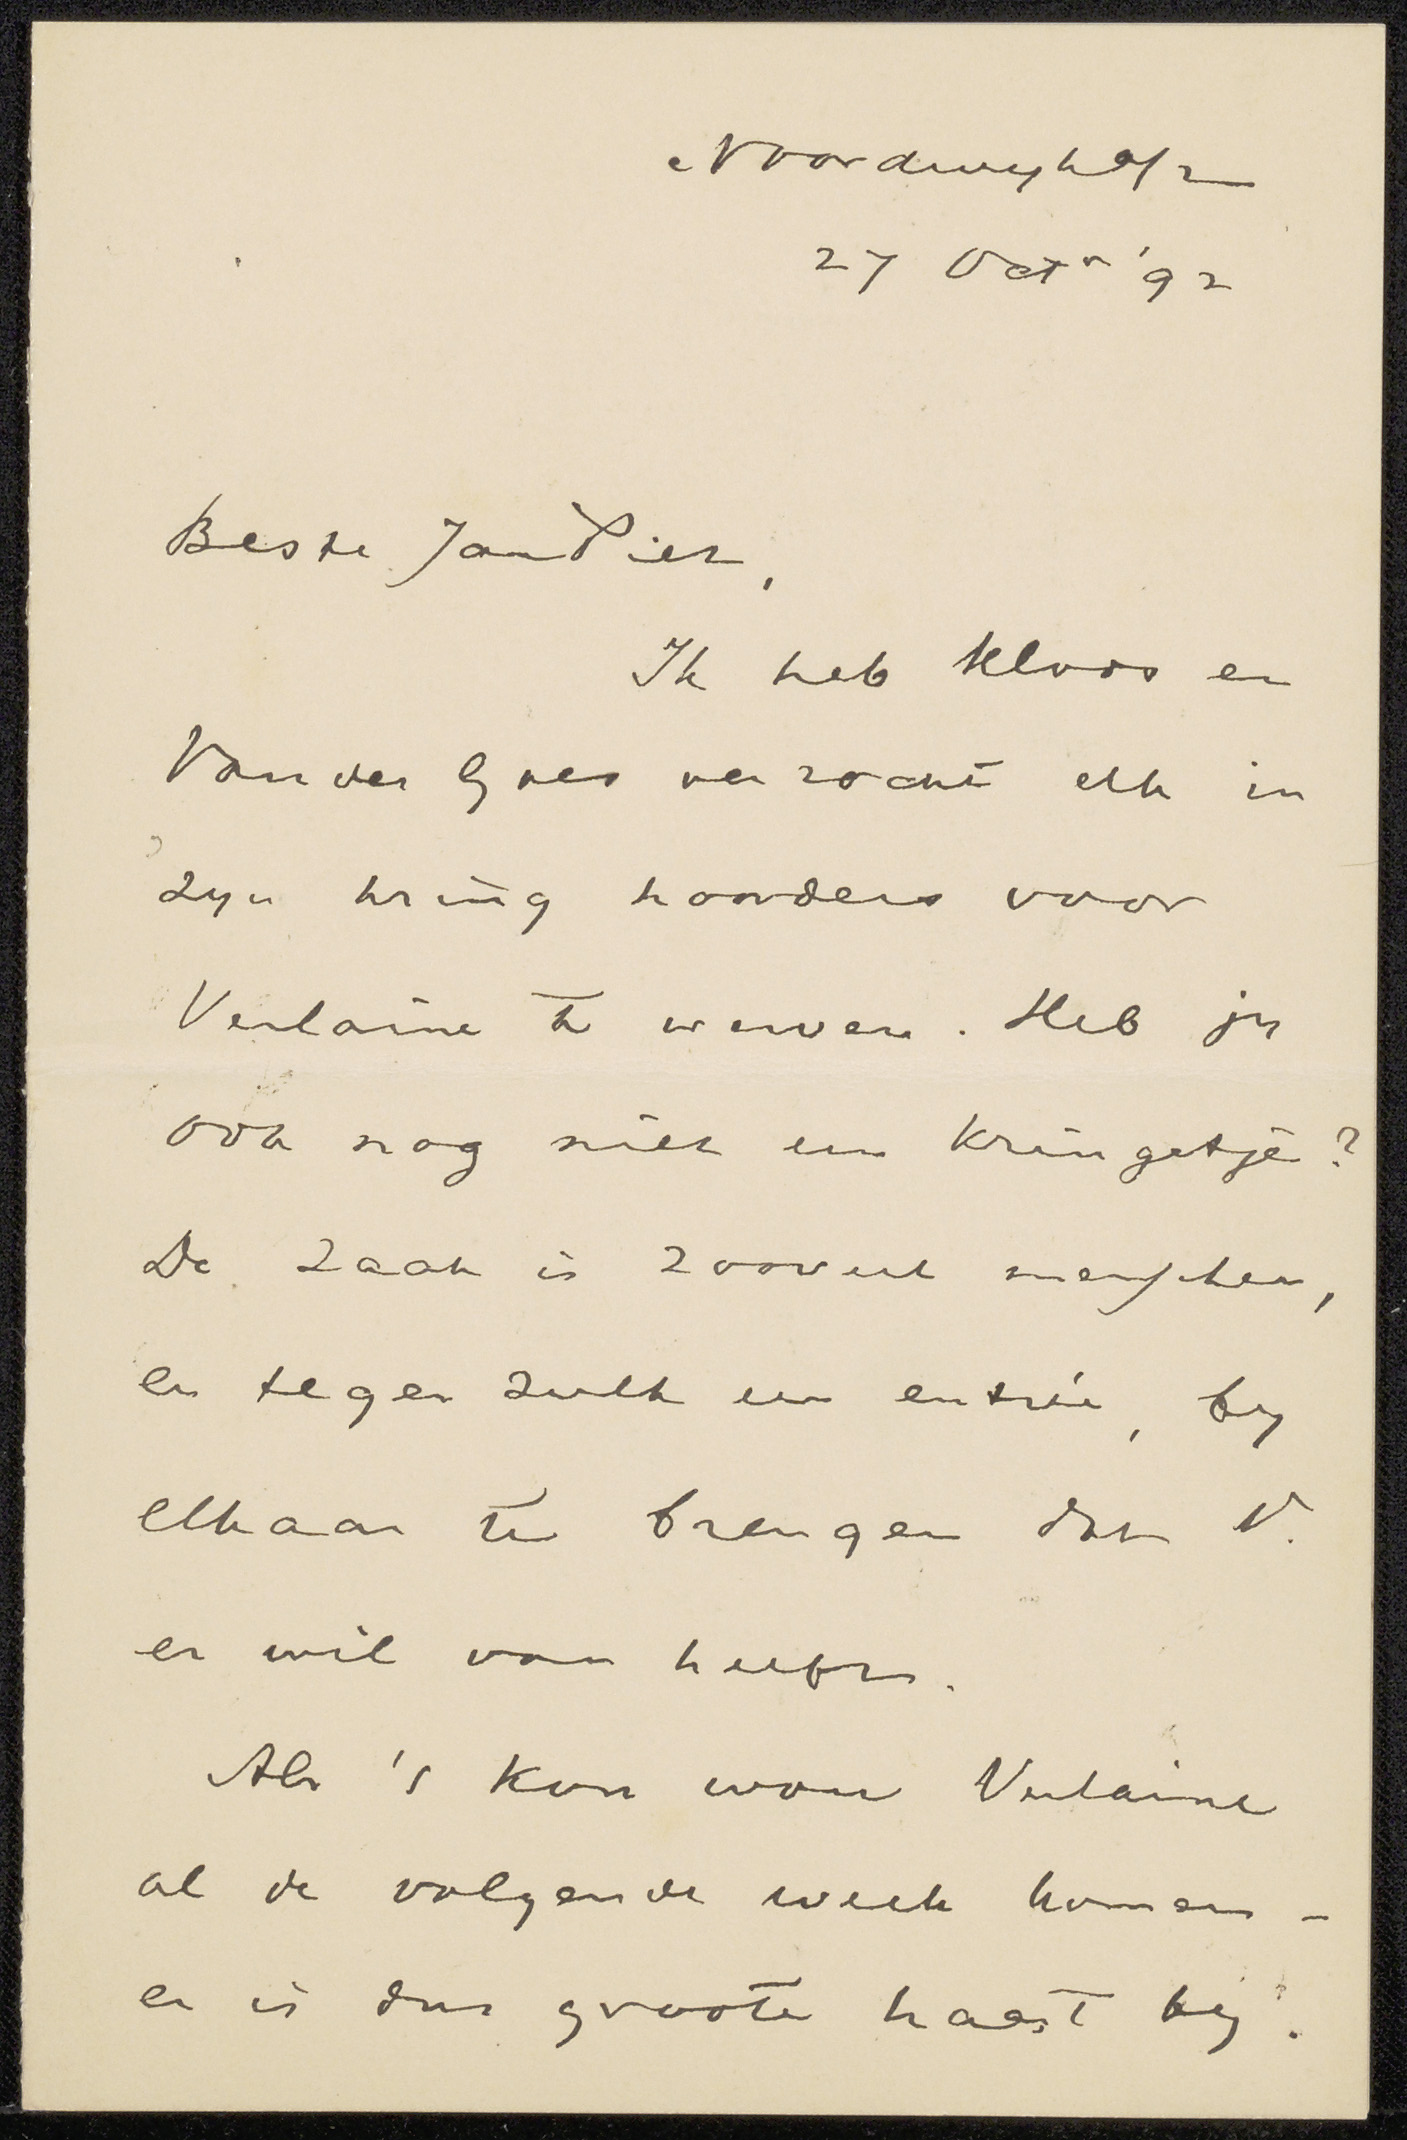 Noordwyk a/z
27 Octr '92
Beste Jan Piet,
Ik heb Kloos en
Van der Goes verzocht elk in
zyn kring hoorders voor
Verlaine te werven. Heb jy
ook nog niet een kringetje?
De zaak is zooveel menschen,
en tegen zulk een entrée, by
elkaar te brengen dat V.
er wil van heeft.
Als 't kon wou Verlaine
al de volgende week komen –
er is dus groote haast by.